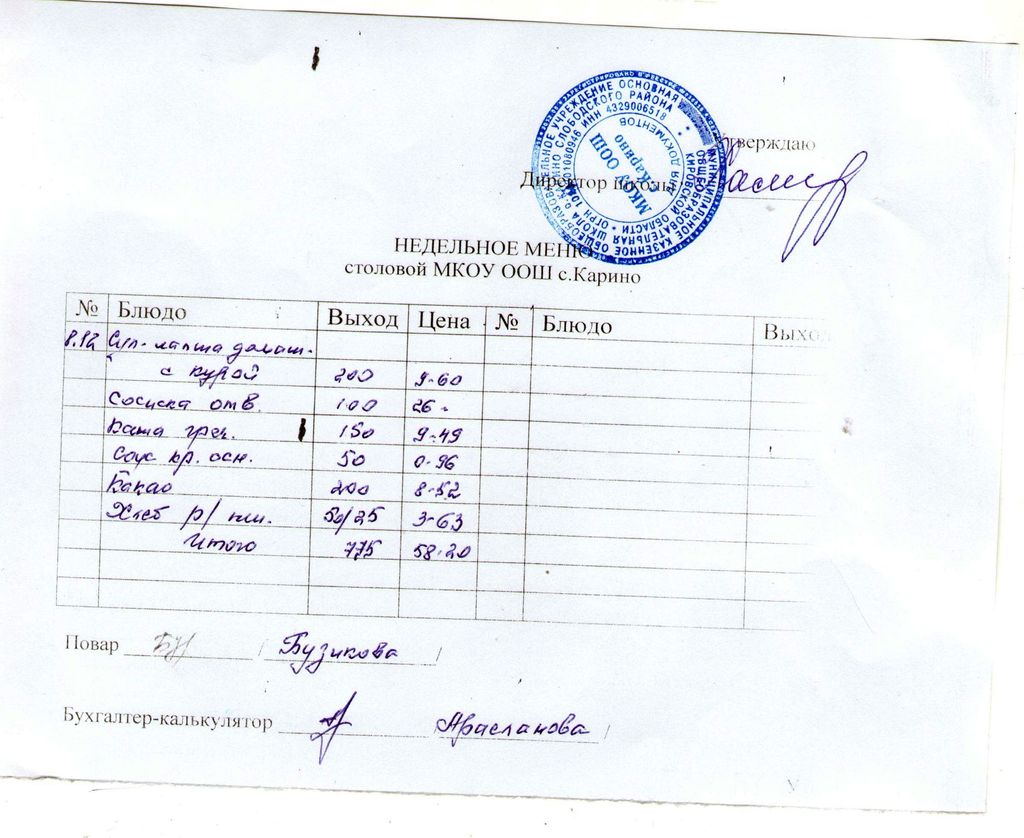 Утверждаю
Директор школы
МУНИЦИПАЛЬНОЕ КАЗЕННОЕ ОБЩЕОБРАЗОВАТЕЛЬНОЕ УЧРЕЖДЕНИЕ ОСНОВНАЯ
ОБЩЕОБРАЗОВАТЕЛЬНАЯ ШКОЛА С. КАРИНО СЛОБОДСКОГО РАЙОНА
КИРОВСКОЙ ОБЛАСТИ * ОГРН ИНН 4329006518
ДЛЯ ДОКУМЕНТОВ
МКОУ ООШ
с.Карино
НЕДЕЛЬНОЕ МЕНЮ
столовой МКОУ ООШ с.Карино
№ Блюдо Выход Цена № Блюдо Выход
8.12 Суп-лапша домаш.
с курой 200 9-60
Сосиска отв. 100 26-
Каша греч. 150 9-49
Соус кр. осн. 50 0-96
Какао 200 8-52
Хлеб р/пш. 50/25 3-63
Итого 775 58-20
Повар / Бузикова /
Бухгалтер-калькулятор Арасланова /